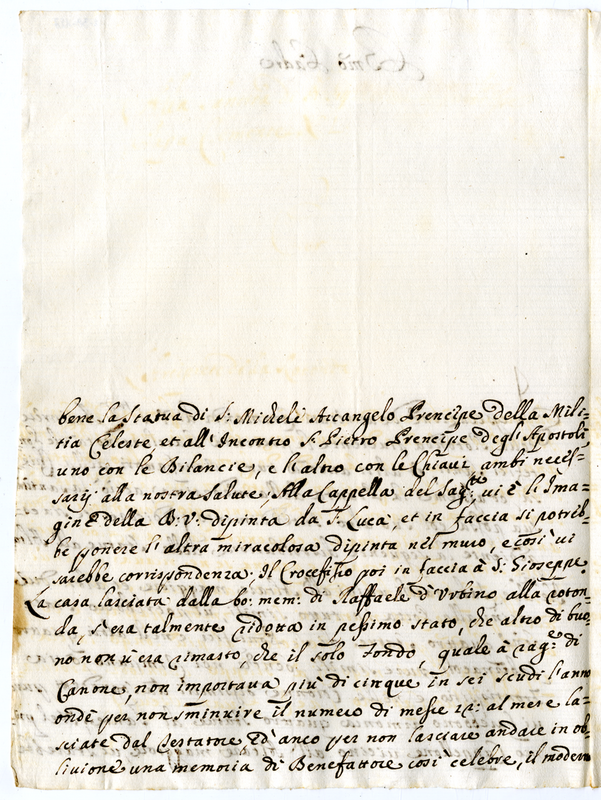 bene la Statua di S: Michele Arcangelo Prencipe della Mili=
tia Celeste, et all'Incontro S. Pietro Prencipe degli Apostoli
uno con le Bilancie, e l'altro con le Chiavi ambi neces=
sarij alla nostra Salute; Alla Cappella del Sag:to vi è l'Ima=
gine della B: V: dipinta da S: Luca, et in faccia si potreb=
be ponere l'altra miracolosa dipinta nel muro, e così vi
sarebbe corrispondenza. Il Crocefisso poi in faccia à S: Gioseppe.
La casa lasciata dalla bo: mem: di Raffaele d'Urbino alla roton=
da, s'era talmente ridotta in pessimo stato, che altro di buo=
no non v'era rimasto, che il solo Fondo, quale à rag:e di
Canone, non importava più di cinque in sei scudi l'anno
onde per non sminuire il numero di messe 12: al mese la=
sciate dal Testatore, ed'anco per non lasciare andare in ob=
livione una memoria di Benefattore così celebre, il modern